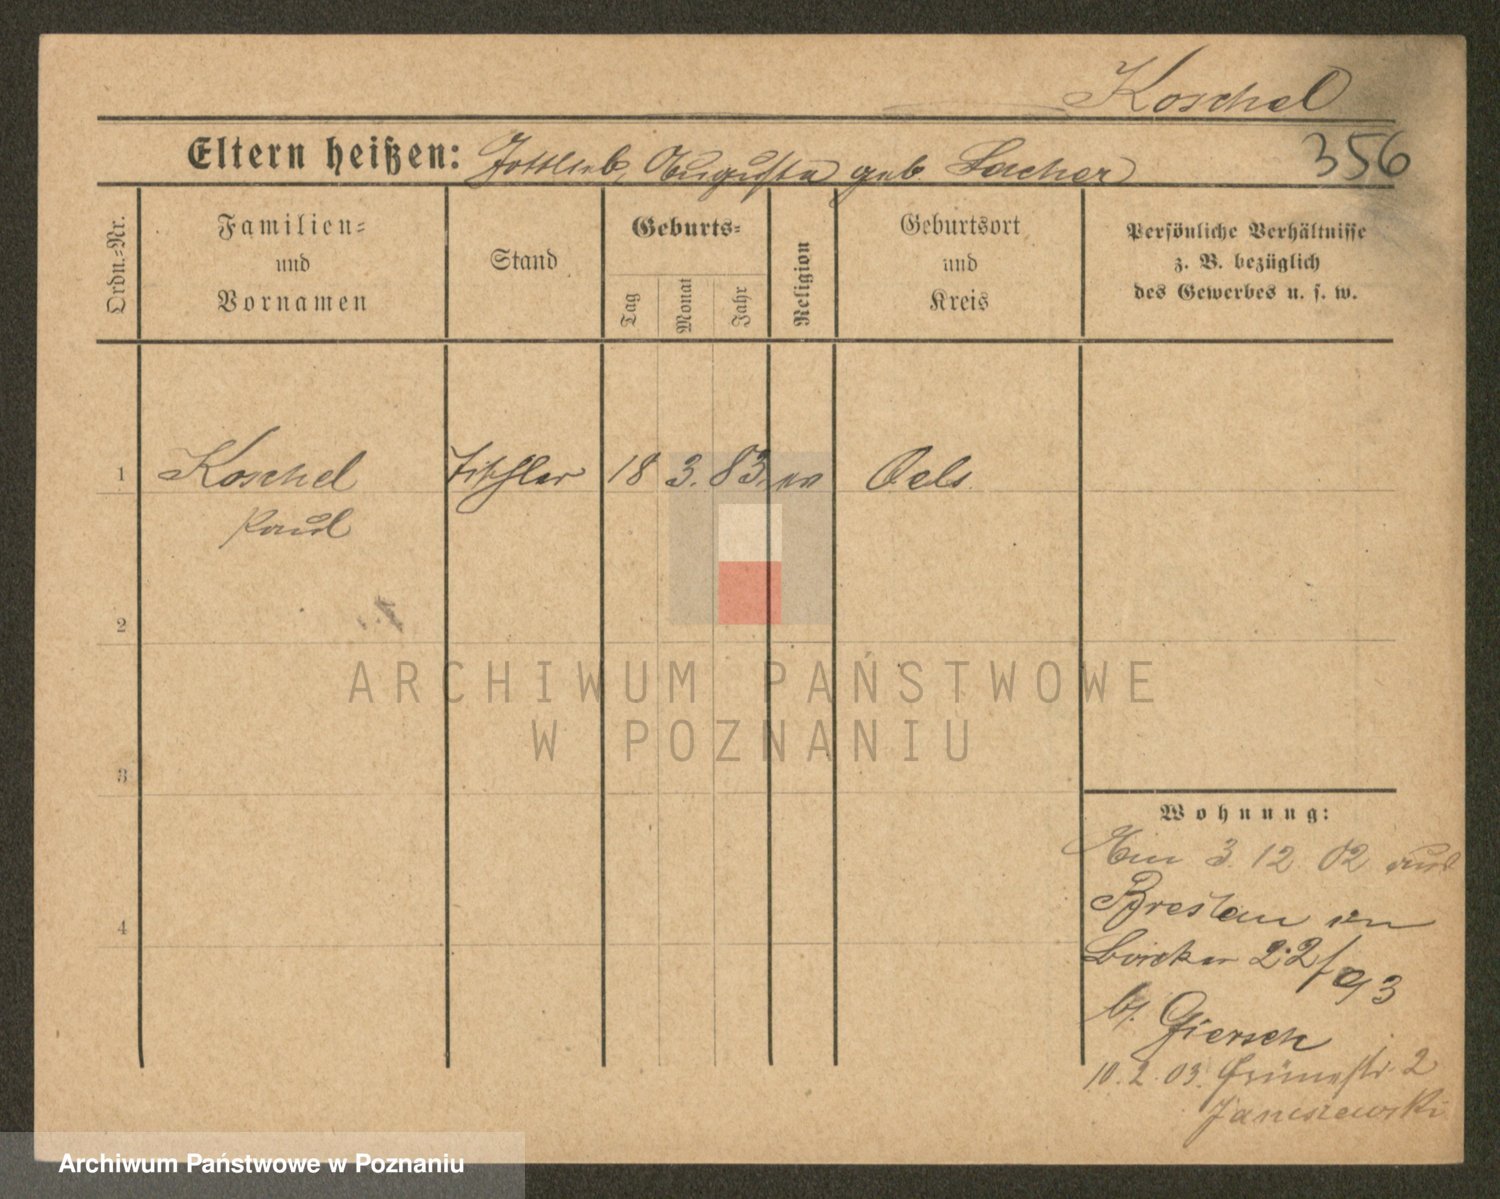 Koschel
356
Eltern heißen: Gottlieb, Augusta geb. Lacher
Ordn.-Nr.
Familien-
und
Vornamen
Stand
Geburts-
Tag
Monat
Jahr
Religion
Geburtsort
und
Kreis
Persönliche Verhältnisse
z. B. bezüglich
des Gewerbes u. s. w.
1
Koschel
Paul
Tischler
18
3.
83.
Oels
2
3
4
ARCHIWUM PAŃSTWOWE
W POZNANIU
Wohnung:
3. 12. 02 aus
Breslau
22/93
b/. Giersch
10. 2. 03. Grünestr. 2
Janiszewski
Archiwum Państwowe w Poznaniu